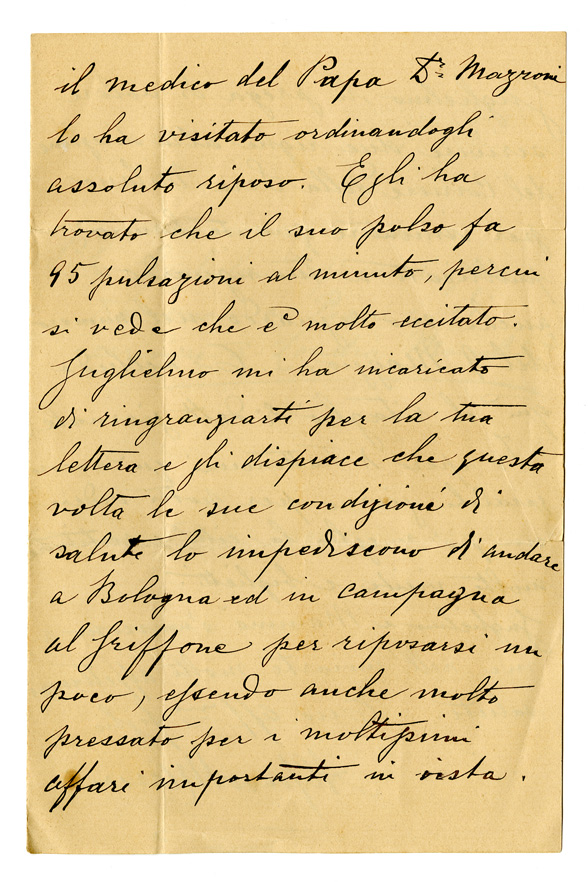 il medico del Papa Dr. Mazzoni
lo ha visitato ordinandogli
assoluto riposo. Egli ha
trovato che il suo polso fa
95 pulsazioni al minuto, percui
si vede che è molto eccitato.
Guglielmo mi ha incaricato
di ringranziarti per la tua
lettera e gli dispiace che questa
volta le sue condizioni di
salute lo impediscono di andare
a Bologna ed in campagna
al Griffone per riposarsi un
poco, essendo anche molto
pressato per i moltissimi
affari importanti in vista.